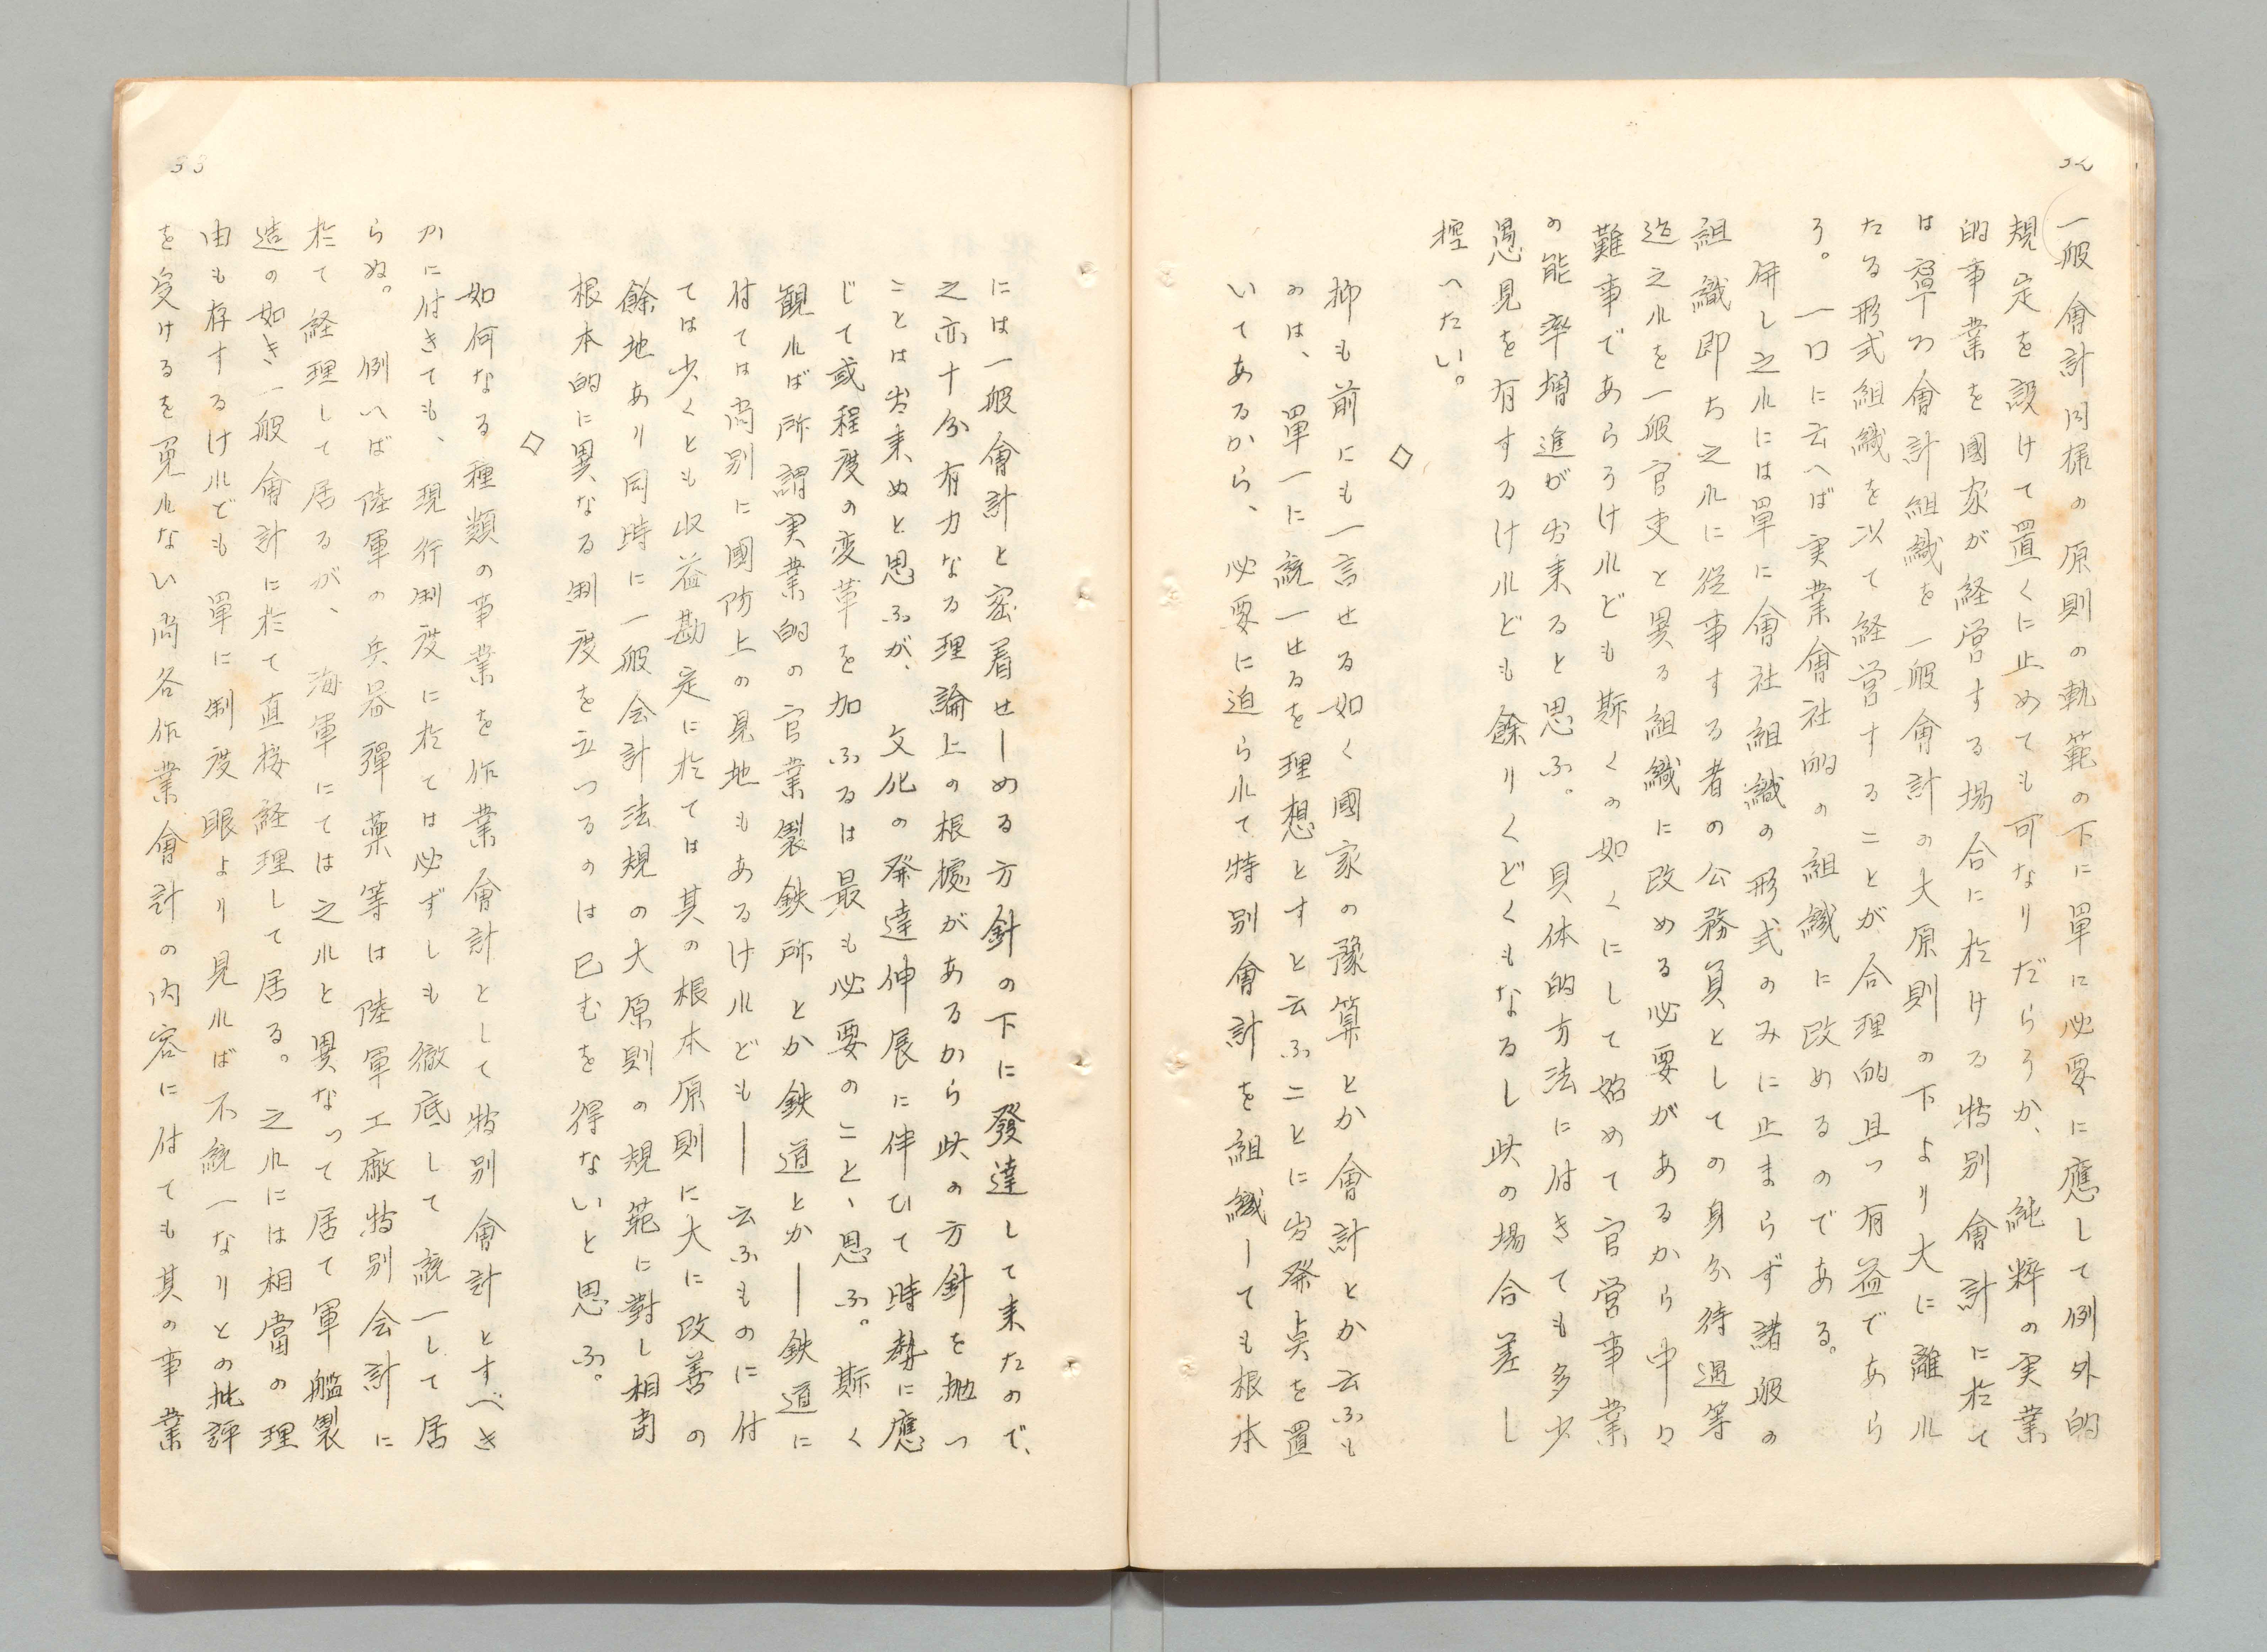 32
一般會計同様の原則の軌範の下に單に必要に應して例外的
規定を設けて置くに止めても可なりだらうか、純粹の実業
的事業を國家が経営する場合に於ける特別會計に於て
は寧ろ會計組織を一般會計の大原則の下より大に離れ
たる形式組織を以て経営することが合理的且つ有益であら
う。一口に云へば実業會社的の組織に改めるのである。
併し之れには單に會社組織の形式のみに止まらず諸般の
組織即ち之れに従事する者の公務員としての身分待遇等
迄之れを一般官吏と異る組織に改める必要があるから中々
難事であらうけれども斯くの如くにして始めて官営事業
の能率増進が出来ると思ふ。具体的方法に付きても多少
愚見を有するけれども餘りくどくもなるし此の場合差し
控へたい。
◇
抑も前にも一言せる如く國家の豫算とか會計とか云ふも
のは、單一に統一せるを理想とすと云ふことに出発点を置
いてあるから、必要に迫られて特別會計を組織しても根本
には一般會計と密着せしめる方針の下に發達して来たので、
之亦十分有力なる理論上の根據があるから此の方針を抛つ
ことは出来ぬと思ふが、文化の発達伸展に伴ひて時勢に應
じて或程度の変革を加ふるは最も必要のこと、思ふ。斯く
観れば所謂実業的の官業製鉄所とか鉄道とか―鉄道に
付ては尚別に國防上の見地もあるけれども―云ふものに付
ては少くとも収益勘定に於ては其の根本原則に大に改善の
餘地あり同時に一般会計法規の大原則の規範に對し相当
根本的に異なる制度を立つるのは已むを得ないと思ふ。
◇
如何なる種類の事業を作業會計として特別會計とすべき
かに付きても、現行制度に於ては必ずしも徹底して統一して居
らぬ。例へば陸軍の兵器彈薬等は陸軍工廠特別会計に
於て経理して居るが、海軍にては之れと異なって居て軍艦製
造の如き一般會計に於て直接経理して居る。之れには相當の理
由も存するけれども單に制度眼より見れば不統一なりとの批評
を受けるを免れない尚各作業會計の内容に付ても其の事業
33